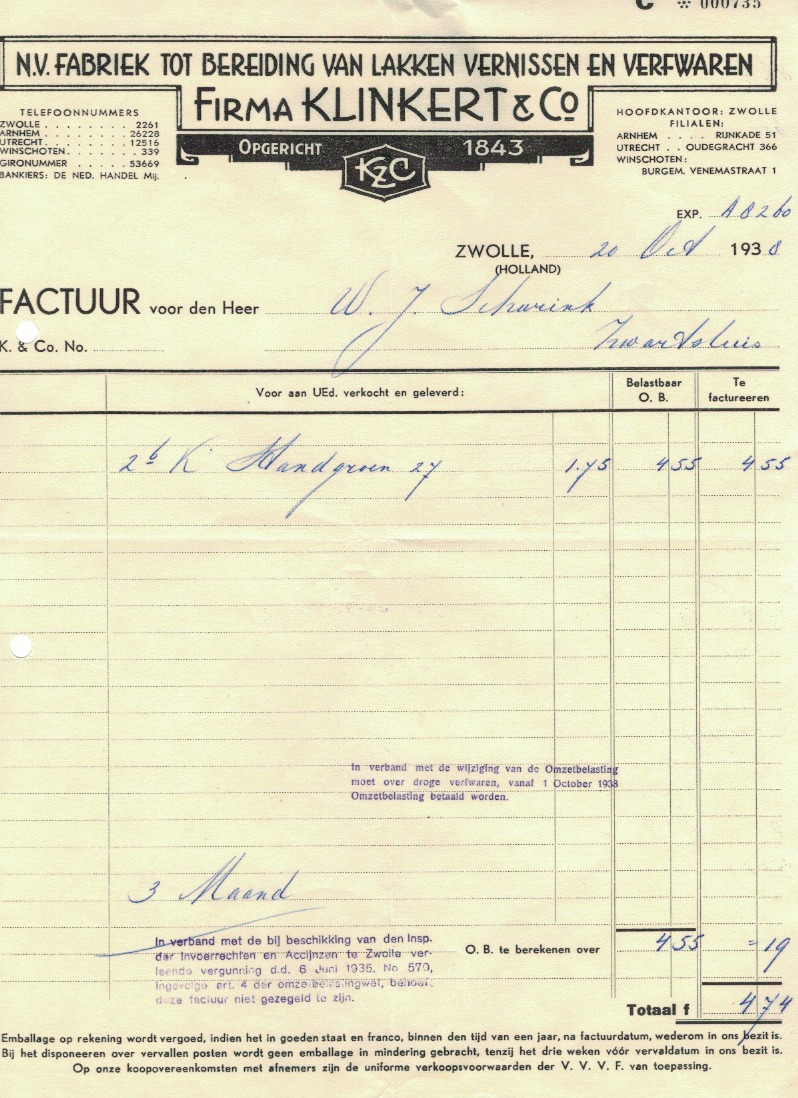 C * 000735
N.V. FABRIEK TOT BEREIDING VAN LAKKEN VERNISSEN EN VERFWAREN
FIRMA KLINKERT & CO
OPGERICHT 1843
KZC
TELEFOONNUMMERS
ZWOLLE . . . . . . . . 2261
ARNHEM . . . . . . . 26228
UTRECHT . . . . . . . 12516
WINSCHOTEN . . . . . . 339
GIRONUMMER . . . . . 53669
BANKIERS: DE NED. HANDEL Mij.
HOOFDKANTOOR: ZWOLLE
FILIALEN:
ARNHEM . . . . RIJNKADE 51
UTRECHT . . OUDEGRACHT 366
WINSCHOTEN:
BURGEM. VENEMASTRAAT 1
EXP. A8260
ZWOLLE, 20 Oct 1938
(HOLLAND)
FACTUUR voor den Heer W. J. Schurink
Zwartsluis
K. & Co. No.
Voor aan UEd. verkocht en geleverd:
Belastbaar O. B.
Te factureeren
2 6 K Handgroen 27 1.75 4 55 4 55
In verband met de wijziging van de Omzetbelasting
moet over droge verfwaren, vanaf 1 October 1938
Omzetbelasting betaald worden.
3 Maand
In verband met de bij beschikking van den Insp.
der Invoerrechten en Accijnzen te Zwolle ver-
leende vergunning d.d. 6 Juni 1935, No 570,
ingevolge art. 4 der omzetbelastingwet, behoeft
deze factuur niet gezegeld te zijn.
O. B. te berekenen over 4 55 = 19
Totaal f 4 74
Emballage op rekening wordt vergoed, indien het in goeden staat en franco, binnen den tijd van een jaar, na factuurdatum, wederom in ons bezit is.
Bij het disponeeren over vervallen posten wordt geen emballage in mindering gebracht, tenzij het drie weken vóór vervaldatum in ons bezit is.
Op onze koopovereenkomsten met afnemers zijn de uniforme verkoopsvoorwaarden der V. V. V. F. van toepassing.